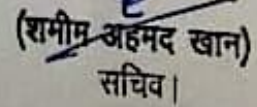 (शमीम अहमद खान)
सचिव।